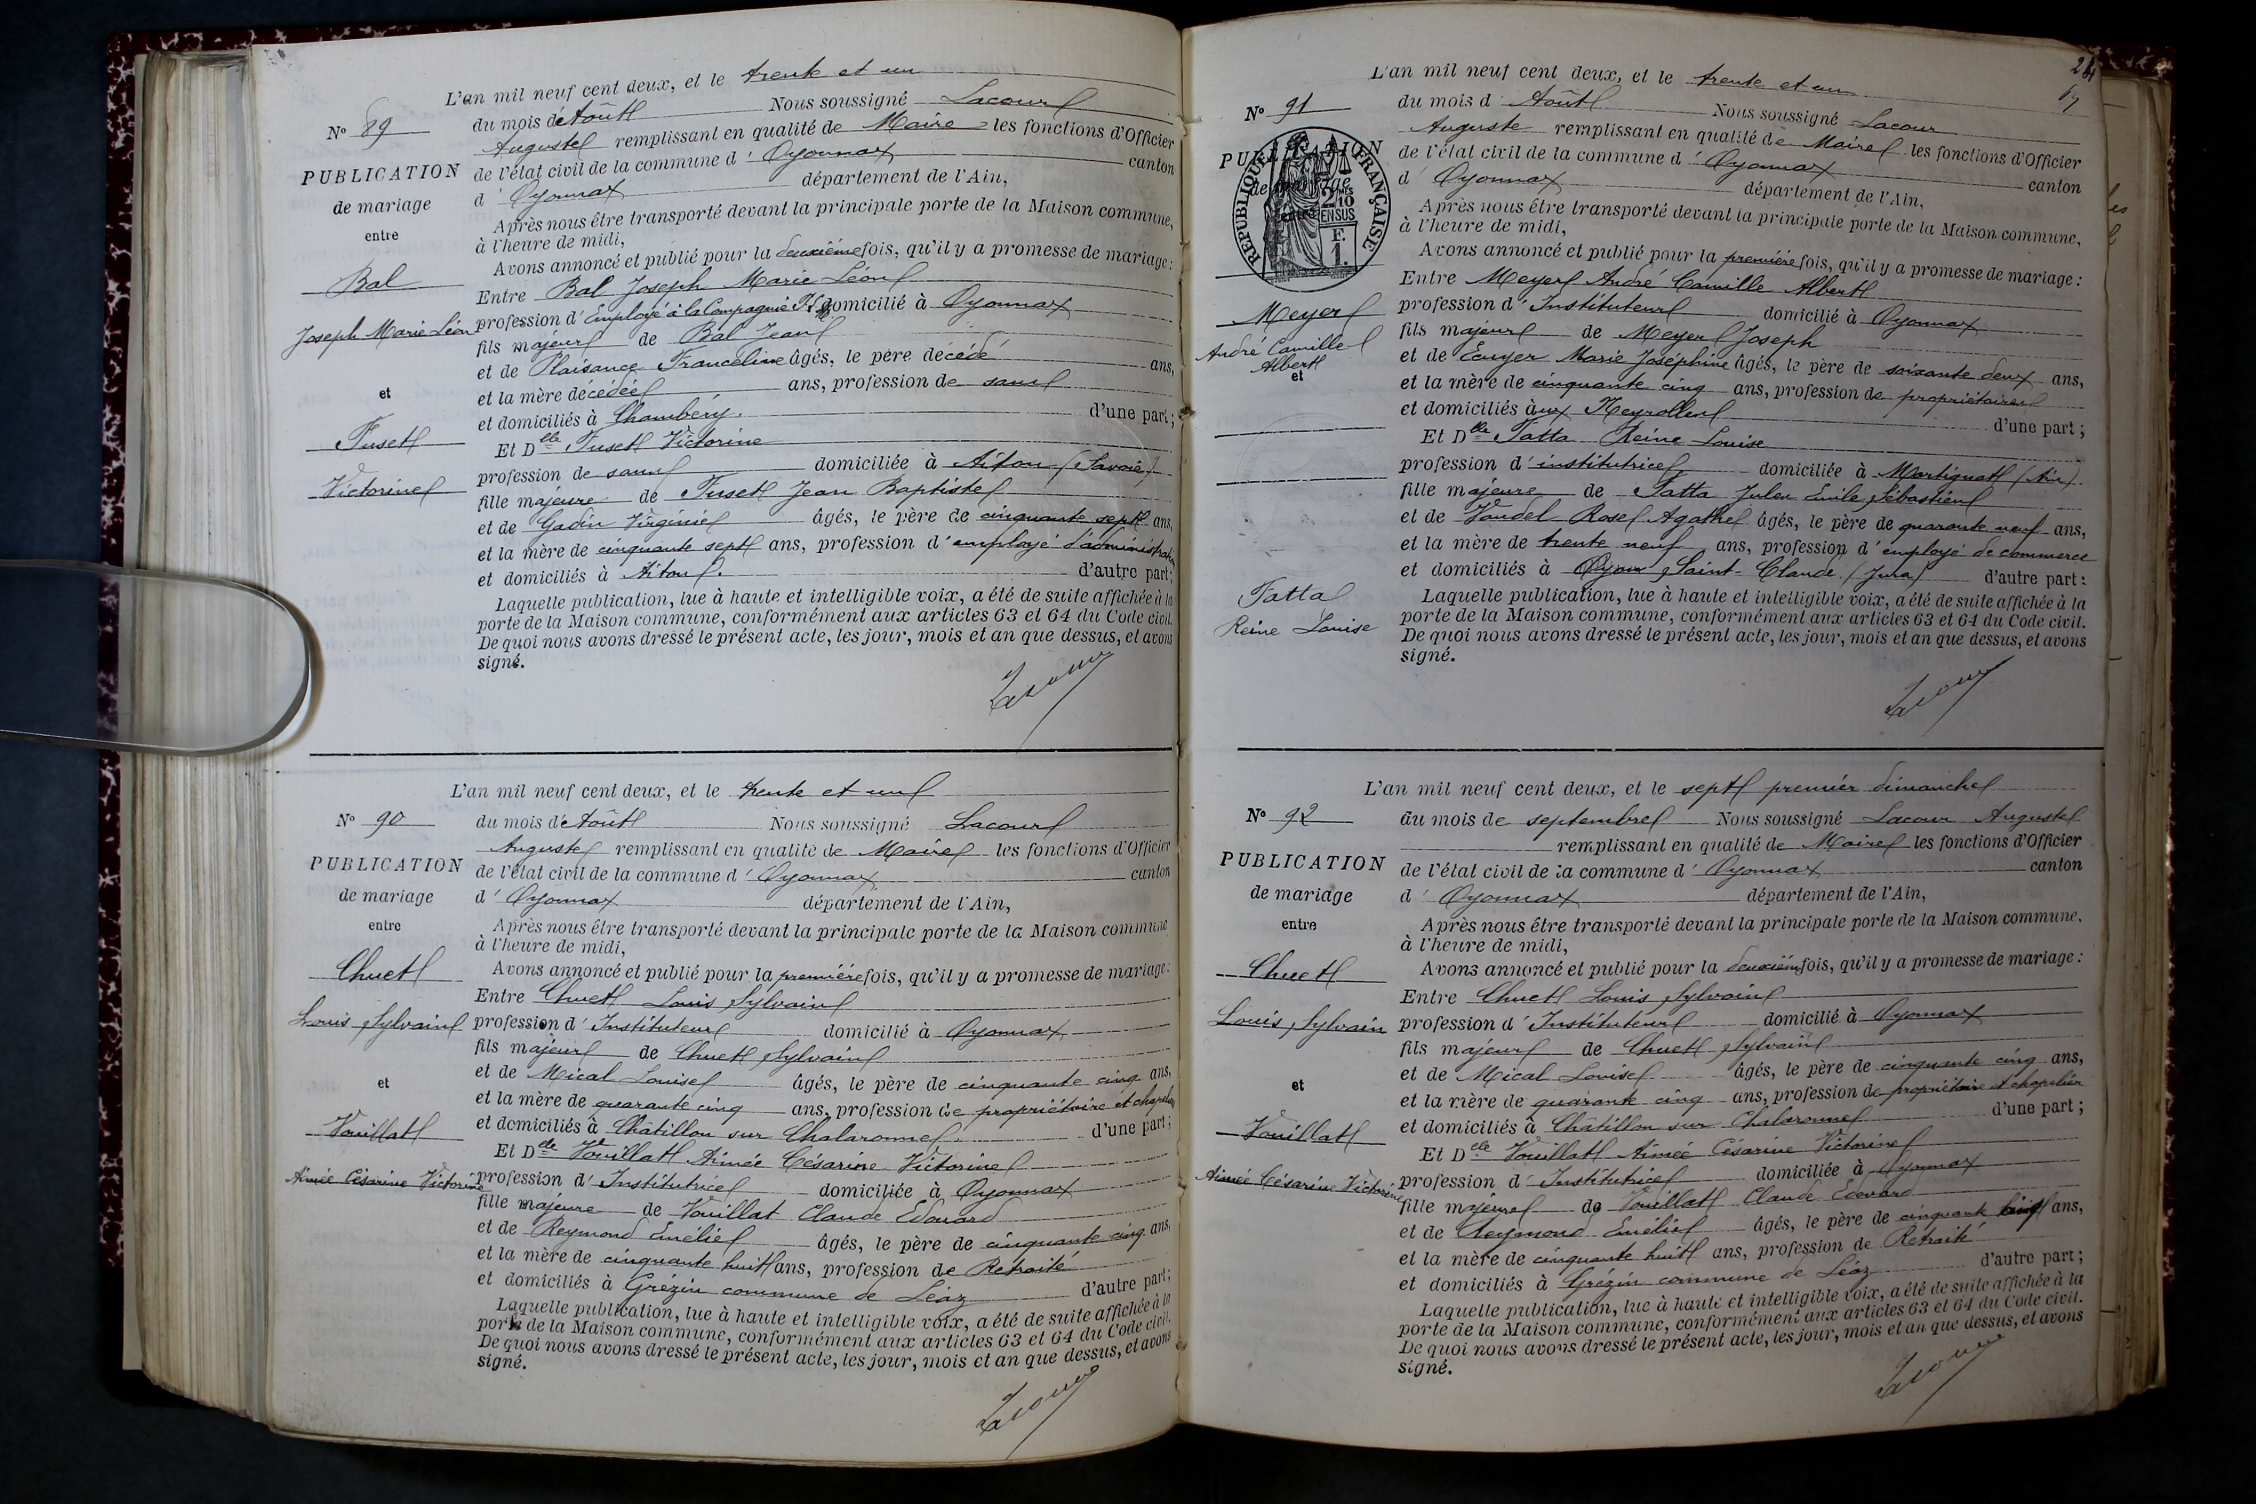 L'an mil neuf cent deux, et le trente et un
N° 89
du mois d'Août Nous soussigné Lacour
Auguste remplissant en qualité de Maire les fonctions d'Officier
PUBLICATION
de l'état civil de la commune d'Oyonnax canton
de mariage
d'Oyonnax département de l'Ain,
entre
Après nous être transporté devant la principale porte de la Maison commune,
à l'heure de midi,
Avons annoncé et publié pour la deuxième fois, qu'il y a promesse de mariage :
Bal
Entre Bal Joseph Marie Léon
Joseph Marie Léon
profession d'Employé à la Compagnie domicilié à Oyonnax
fils majeur de Bal Jean
et de Plaisance Franceline âgés, le père décédé ans,
et
et la mère décédée ans, profession de sans
et domiciliés à Chambéry. d'une part ;
Fuset
Et Delle Fuset Victorine
Victorine
profession de sans domiciliée à Aiton (Savoie)
fille majeure de Fuset Jean Baptiste
et de Gadin Virginie âgés, le père de cinquante sept ans,
et la mère de cinquante sept ans, profession d'employé d'administration
et domiciliés à Aiton. d'autre part ;
Laquelle publication, lue à haute et intelligible voix, a été de suite affichée à la
porte de la Maison commune, conformément aux articles 63 et 64 du Code civil.
De quoi nous avons dressé le présent acte, les jour, mois et an que dessus, et avons
signé.
Lacour
L'an mil neuf cent deux, et le trente et un
N° 90
du mois d'Août Nous soussigné Lacour
Auguste remplissant en qualité de Maire les fonctions d'Officier
PUBLICATION
de l'état civil de la commune d'Oyonnax canton
de mariage
d'Oyonnax département de l'Ain,
entre
Après nous être transporté devant la principale porte de la Maison commune
à l'heure de midi,
Chuet
Avons annoncé et publié pour la première fois, qu'il y a promesse de mariage :
Entre Chuet Louis Sylvain
Louis Sylvain
profession d'Instituteur domicilié à Oyonnax
fils majeur de Chuet Sylvain
et de Mical Louise âgés, le père de cinquante cinq ans,
et
et la mère de quarante cinq ans, profession de propriétaire et chapelier
et domiciliés à Châtillon sur Chalaronne. d'une part ;
Vouillat
Et Delle Vouillat Aimée Césarine Victorine
Aimée Césarine Victorine
profession d'Institutrice domiciliée à Oyonnax
fille majeure de Vouillat Claude Edouard
et de Reymond Emélie âgés, le père de cinquante cinq ans,
et la mère de cinquante huit ans, profession de Retraité
et domiciliés à Grézin commune de Léaz d'autre part ;
Laquelle publication, lue à haute et intelligible voix, a été de suite affichée à la
porte de la Maison commune, conformément aux articles 63 et 64 du Code civil.
De quoi nous avons dressé le présent acte, les jour, mois et an que dessus, et avons
signé.
Lacour
24
67
L'an mil neuf cent deux, et le trente et un
N° 91
du mois d'Août Nous soussigné Lacour
Auguste remplissant en qualité de Maire les fonctions d'Officier
PUBLICATION
de l'état civil de la commune d'Oyonnax canton
de mariage
d'Oyonnax département de l'Ain,
entre
RÉPUBLIQUE FRANÇAISE
2/10 EN SUS
F. 1.
Après nous être transporté devant la principale porte de la Maison commune,
à l'heure de midi,
Avons annoncé et publié pour la première fois, qu'il y a promesse de mariage :
Entre Meyer André Camille Albert
Meyer
profession d'Instituteur domicilié à Oyonnax
André Camille
Albert
fils majeur de Meyer Joseph
et de Ecuyer Marie Joséphine âgés, le père de soixante deux ans,
et
et la mère de cinquante cinq ans, profession de propriétaires
et domiciliés aux Neyrolles d'une part ;
Et Delle Tatta Reine Louise
profession d'institutrice domiciliée à Martignat (Ain).
fille majeure de Tatta Jules Emile Sébastien
et de Vandel Rose Agathe âgés, le père de quarante neuf ans,
et la mère de trente neuf ans, profession d'employé de commerce
et domiciliés à Oyon Saint-Claude (Jura) d'autre part :
Tatta
Reine Louise
Laquelle publication, lue à haute et intelligible voix, a été de suite affichée à la
porte de la Maison commune, conformément aux articles 63 et 64 du Code civil.
De quoi nous avons dressé le présent acte, les jour, mois et an que dessus, et avons
signé.
Lacour
L'an mil neuf cent deux, et le sept premier dimanche
N° 92
du mois de septembre Nous soussigné Lacour Auguste
remplissant en qualité de Maire les fonctions d'Officier
PUBLICATION
de l'état civil de la commune d'Oyonnax canton
de mariage
d'Oyonnax département de l'Ain,
entre
Après nous être transporté devant la principale porte de la Maison commune.
à l'heure de midi,
Chuet
Avons annoncé et publié pour la deuxième fois, qu'il y a promesse de mariage :
Entre Chuet Louis Sylvain
Louis Sylvain
profession d'Instituteur domicilié à Oyonnax
fils majeur de Chuet Sylvain
et de Mical Louise âgés, le père de cinquante cinq ans,
et
et la mère de quarante cinq ans, profession de propriétaire et chapelier
et domiciliés à Châtillon sur Chalaronne d'une part ;
Vouillat
Et Delle Vouillat Aimée Césarine Victorine
Aimée Césarine Victorine
profession d'Institutrice domiciliée à Oyonnax
fille majeure de Vouillat Claude Edouard
et de Reymond Emélie âgés, le père de cinquante cinq ans,
et la mère de cinquante huit ans, profession de Retraité
et domiciliés à Grézin commune de Léaz d'autre part ;
Laquelle publication, lue à haute et intelligible voix, a été de suite affichée à la
porte de la Maison commune, conformément aux articles 63 et 64 du Code civil.
De quoi nous avons dressé le présent acte, les jour, mois et an que dessus, et avons
signé.
Lacour